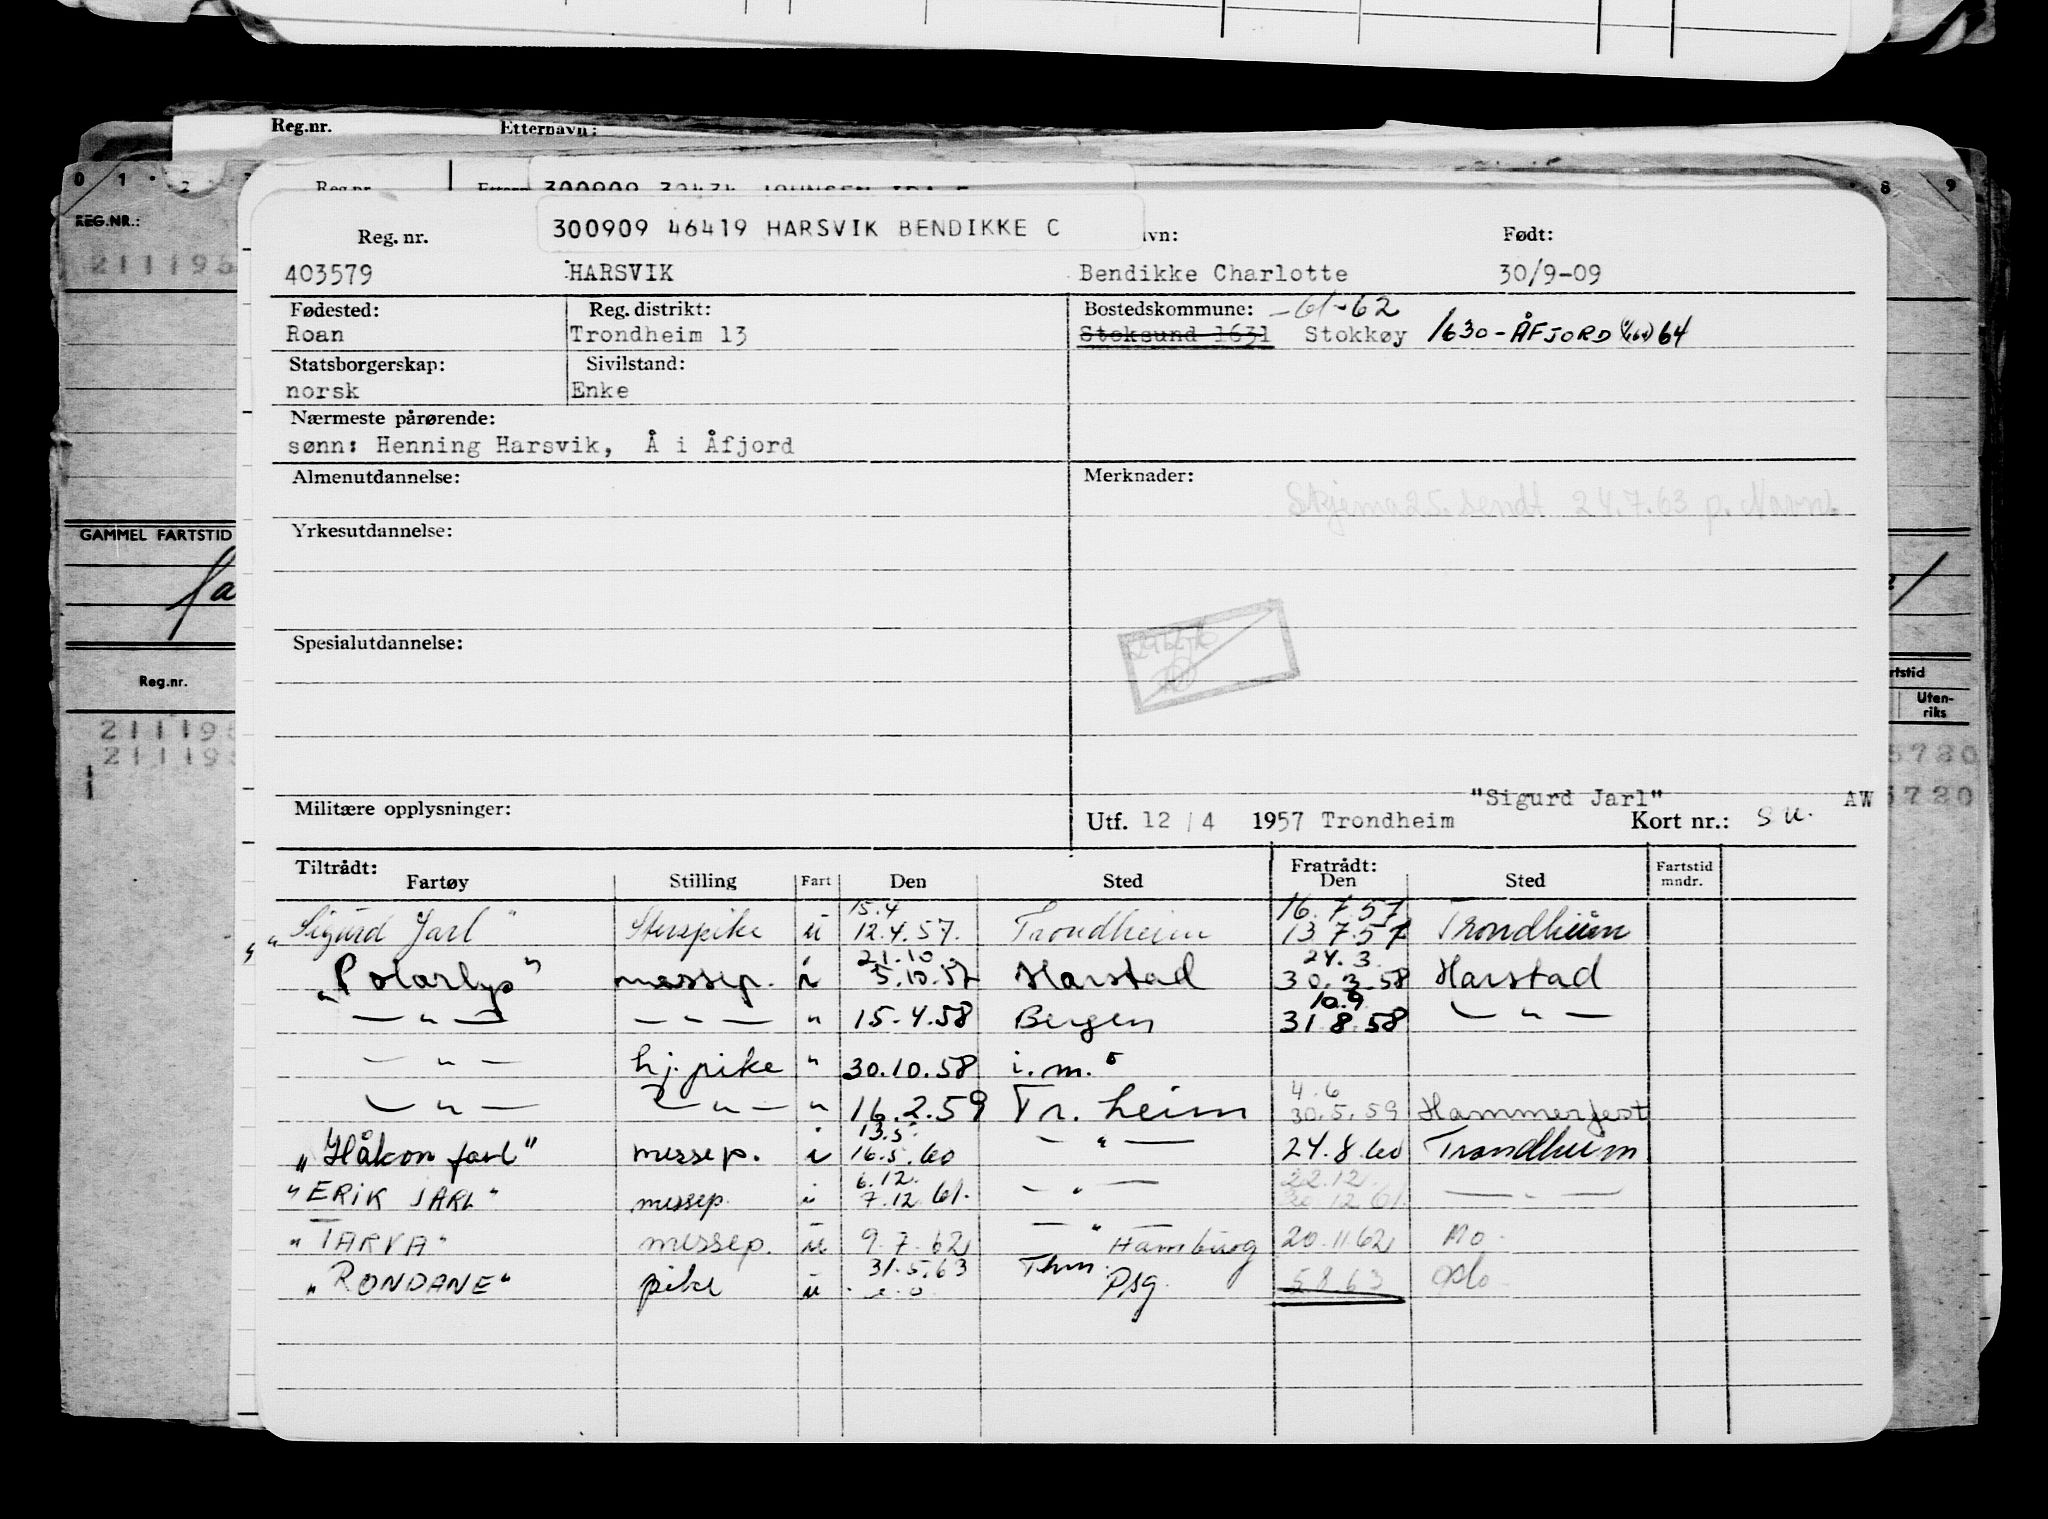 Reg.nr. Etternavn:
0 1 2 8 9
Reg.nr.
REG.NR.:
300909 46419 HARSVIK BENDIKKE C
Reg. nr. Født:
403579 HARSVIK Bendikke Charlotte 30/9-09
Fødested: Reg. distrikt: Bostedskommune: -61-62
Roan Trondheim 13 Stoksund 1631 Stokkøy 1630-ÅFJORD 64
Statsborgerskap: Sivilstand:
norsk Enke
Nærmeste pårørende:
sønn: Henning Harsvik, Å i Åfjord
Almenutdannelse: Merknader:
Skjema 25. sendt 24.7.63 p. Navn.
Yrkesutdannelse:
GAMMEL FARTSTID
Spesialutdannelse:
Reg.nr.
Uten-
riks
"Sigurd Jarl" AW
Militære opplysninger: Utf. 12/4 1957 Trondheim Kort nr.: s u.
Tiltrådt: Fratrådt: Fartstid
Fartøy Stilling Fart Den Sted Den Sted mndr.
15.4 16.7.57
"Sigurd Jarl" u 12.4.57. Trondheim 13.7.57 Trondheim
21.10. 24.3.
"Polarlys" messep. i 5.10.57 Harstad 30.3.58 Harstad
10.9
— " — — " — " 15.4.58 Bergen 31.8.58 — " —
— " — hj.pike " 30.10.58 i.m.
4.6
— " — — " — " 16.2.59 Tr.heim 30.5.59 Hammerfest
13.5.
"Håkon Jarl" messep. i 16.5.60 — " — 24.8.60 Trondheim
6.12. 22.12.
"ERIK JARL" messep. i 7.12.61. — " — 61. — " —
"TARVA" messep. u 9.7.62 — " — Hamburg 20.11.62 Mo.
31.5.63 Thm.
"RONDANE" pike u Psg. 5.8.63 Oslo